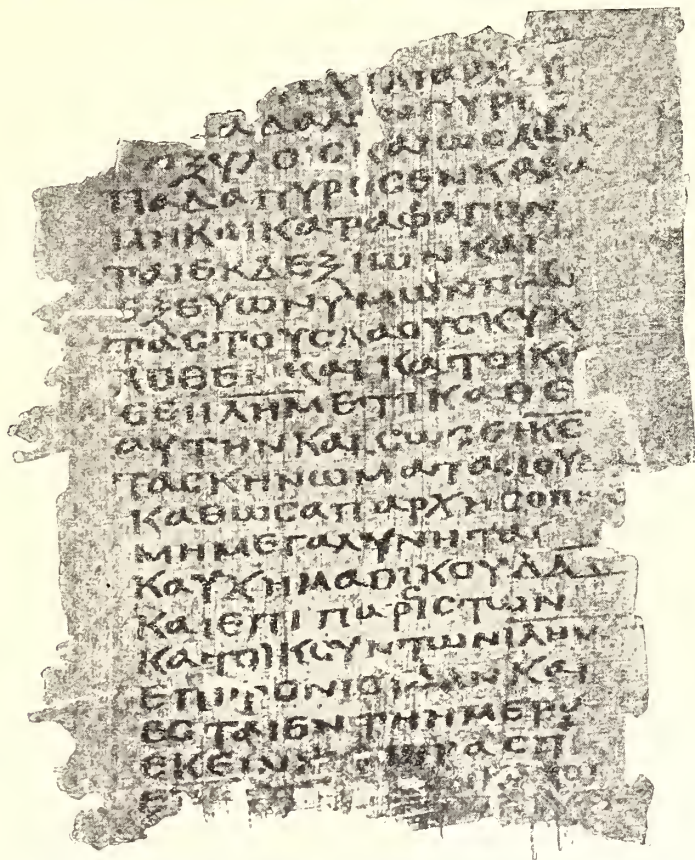 ΧΙΛΙΑΡΧΟΥ
ΔΑΛΟ ΠΥΡΟ
ΞΥΛΟΙC ΚΑΙ ΩC ΛΑΜ
ΠΑΔΑ ΠΥΡΟC ΕΝ ΚΑΛΑ
ΜΗ ΚΑΙ ΚΑΤΑΦΑΓΟΝ
ΤΑΙ ΕΚ ΔΕΞΙΩΝ ΚΑΙ
ΕΞ ΕΥΩΝΥΜΩΝ ΠΑ
ΤΑC ΤΟΥC ΛΑΟΥC ΚΥΚ
ΛΟΘΕΝ ΚΑΙ ΚΑΤΟΙΚΗ
CΕΙ ΙΛΗΜ ΕΤΙ ΚΑΘ Ε
ΑΥΤΗΝ ΚΑΙ CΩCΕΙ ΚC
ΤΑ CΚΗΝΩΜΑΤΑ ΙΟΥΔ
ΚΑΘΩC ΑΠ ΑΡΧΗC ΟΠ
ΜΗ ΜΕΓΑΛΥΝΗΤΑΙ
ΚΑΥΧΗΜΑ ΟΙΚΟΥ ΔΑΔ
ΚΑΙ ΕΠΙ ΠΑΡCΙC ΤΩΝ
ΚΑΤΟΙΚΟΥΝΤΩΝ ΙΛΗΜ
ΕΠΙ ΤΟΝ ΙΟΥΔΑΝ ΚΑΙ
ΕCΤΑΙ ΕΝ ΤΗ ΗΜΕΡΑ
ΕΚΕΙΝΗ ΥΠΕΡΑCΠΙ